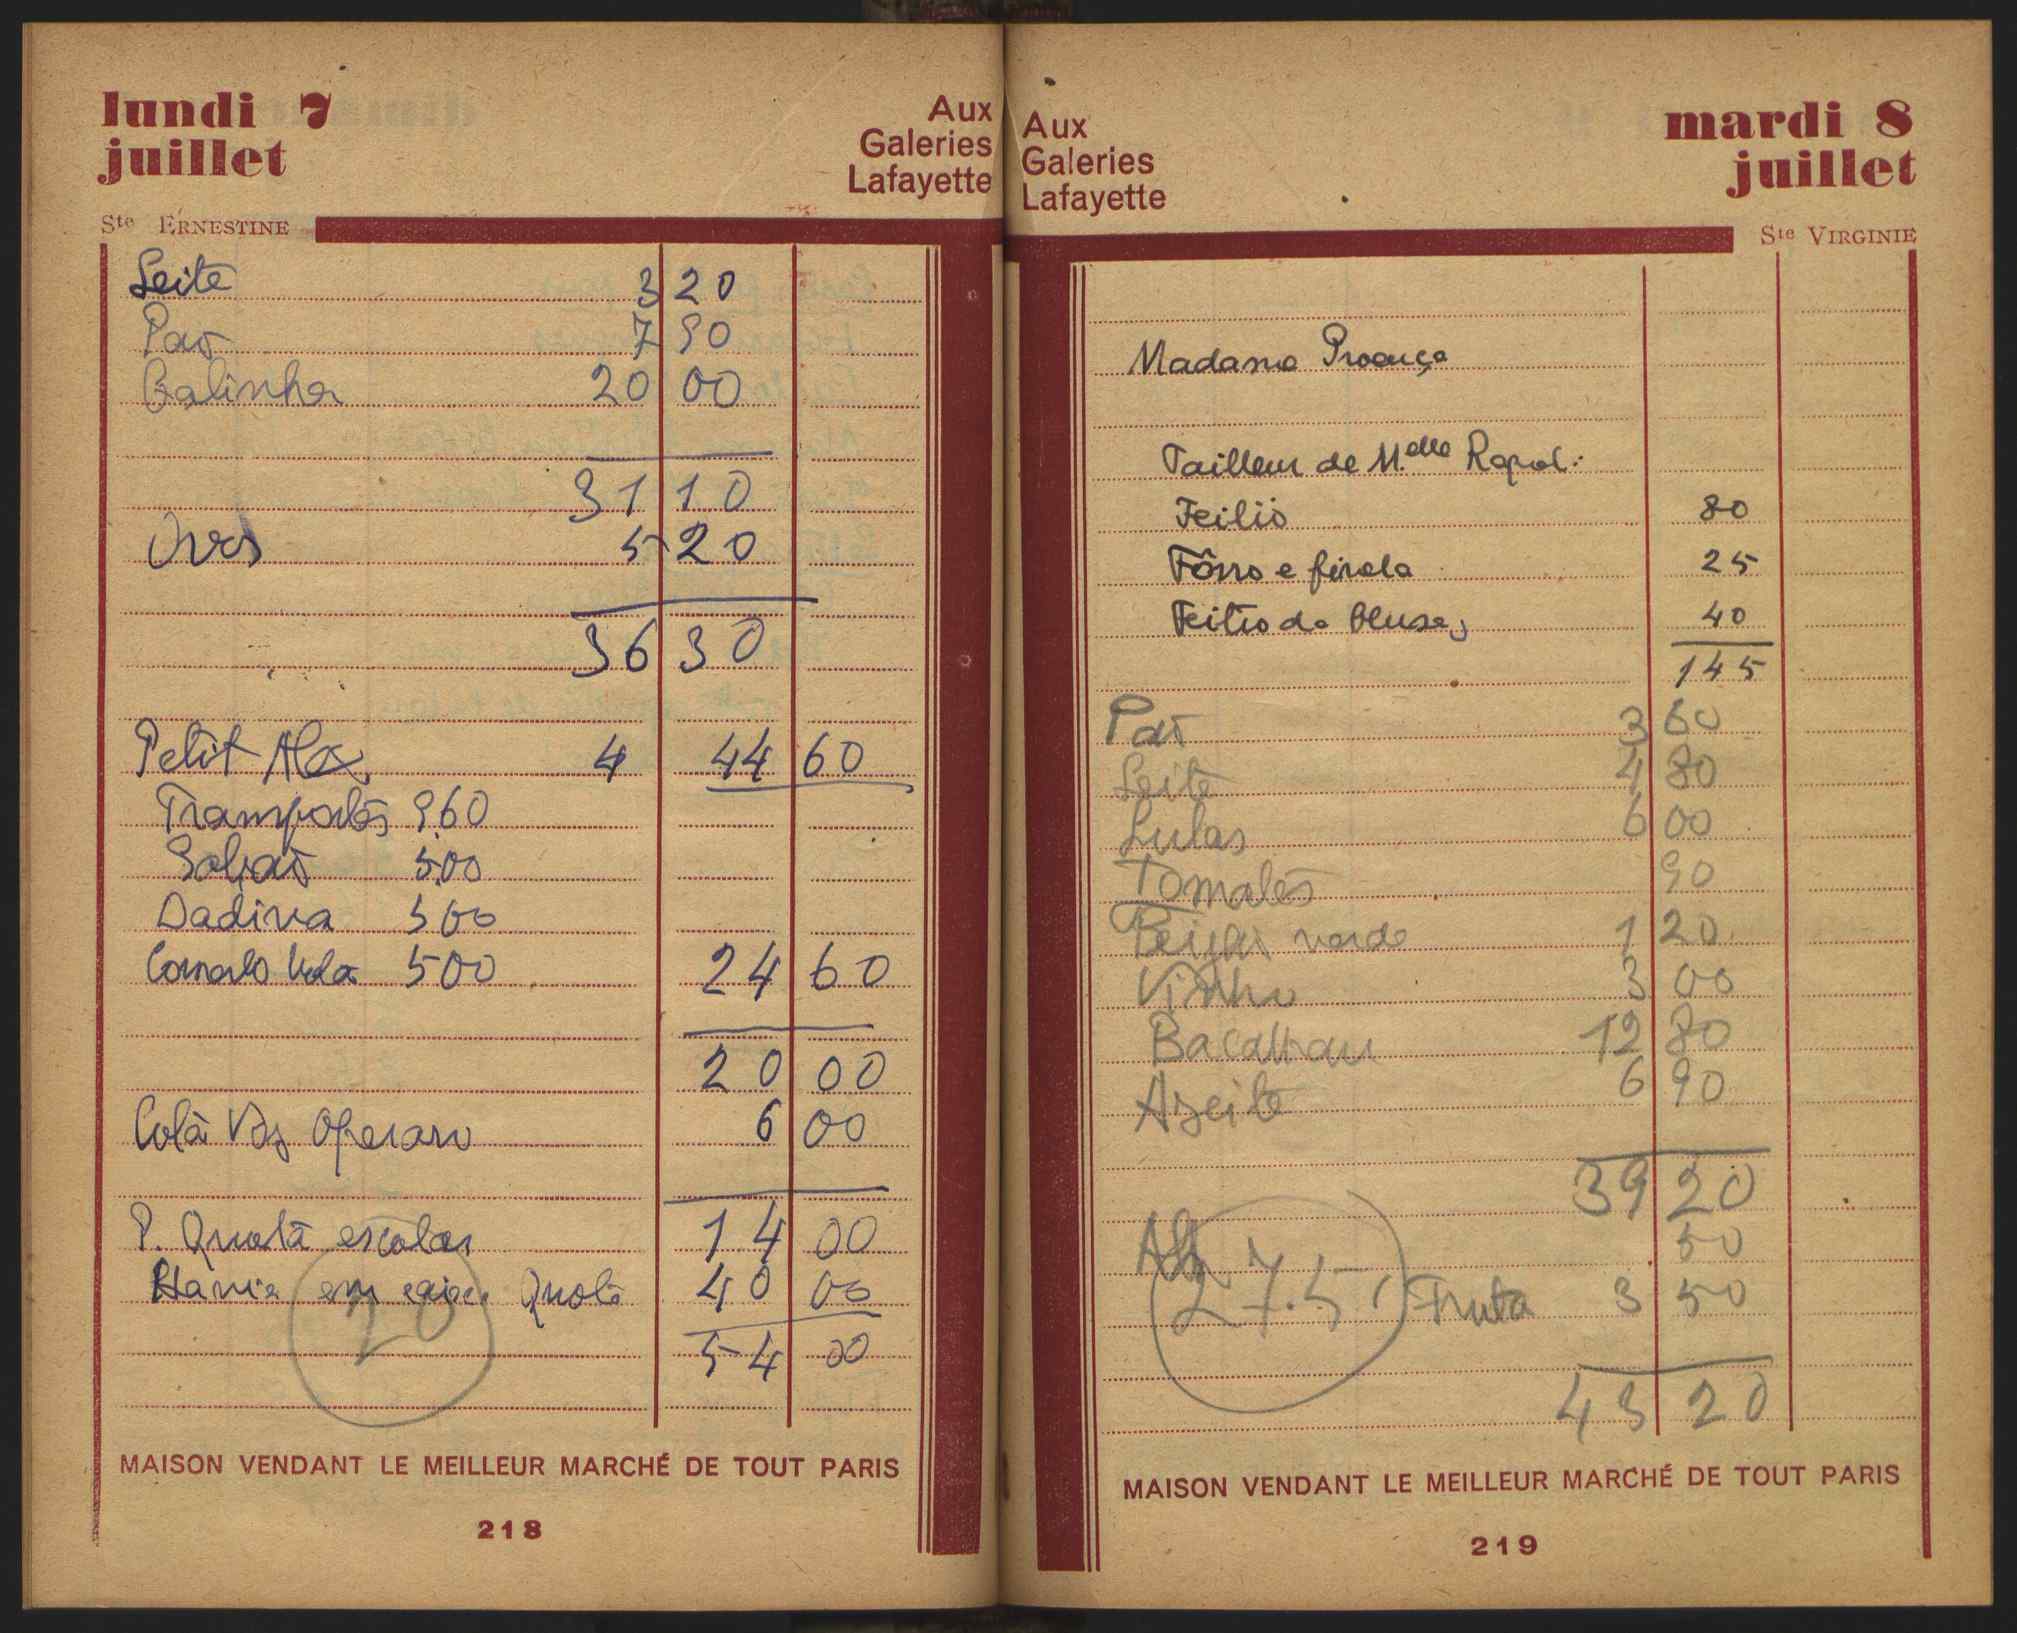 lundi 7
juillet
Aux
Galeries
Lafayette
Ste ERNESTINE
Leite 3 20
Pão 7 90
Galinha 20 00
31 10
Ovos 5 20
36 30
Petit Alex. 4 44 60
Transportes 9.60
Sabão 5.00
Dadiva 5 00
500
24 60
20 00
Cota Voz Operario 6 00
P. Quota escolar 14 00
Havia em caixa Quota 40 00
20
54 00
MAISON VENDANT LE MEILLEUR MARCHÉ DE TOUT PARIS
218
Aux
Galeries
Lafayette
mardi 8
juillet
Ste VIRGINIE
Madame Proença
Tailleur de M.elle Rapol:
Feitio 80
Fôrro e firela 25
Feitio da blusa 40
145
Pão 3 60
Leite 4 80
Lulas 6 00
Tomates 90
Feijão verde 1 20
Vinho 3 00
Bacalhau 12 80
Azeite 6 90
39 20
50
27.5
Fruta 3 50
43 20
MAISON VENDANT LE MEILLEUR MARCHÉ DE TOUT PARIS
219